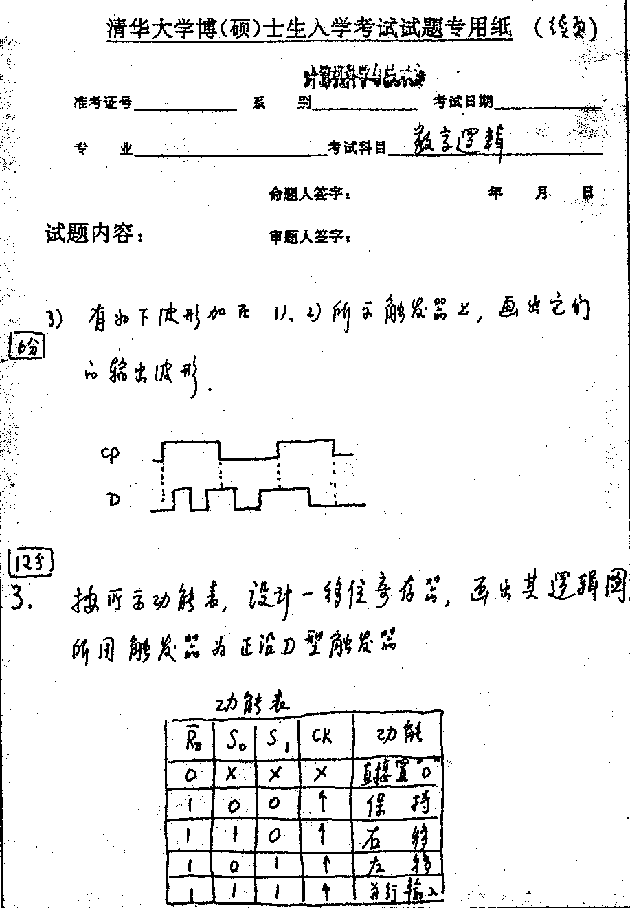 清华大学博(硕)士生入学考试试题专用纸 (续页)
计算机科学与技术
准考证号 系 别 考试日期
专 业 考试科目 数字逻辑
命题人签字: 年 月 日
试题内容: 审题人签字:
3) 有如下波形加在 1)、2) 所示触发器上, 画出它们
6分
的输出波形.
CP
D
12分
3. 按所示功能表, 设计一移位寄存器, 画出其逻辑图
所用触发器为正沿D型触发器
功能表
R̅D S0 S1 CK 功能
0 × × × 直接置"0"
1 0 0 ↑ 保持
1 1 0 ↑ 右移
1 0 1 ↑ 左移
1 1 1 ↑ 并行输入